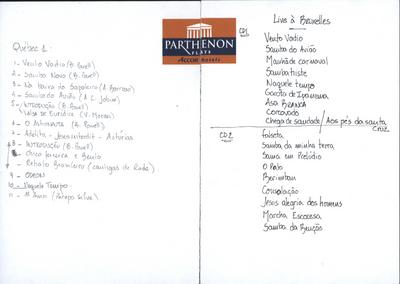 Québec 1:
1- Vento Vadio (B. Powell)
2- Samba Novo (B. Powell)
3- Na baixa do Sapateiro (A. Barroso)
4- Samba do Avião (A. C. Jobim)
5- Introdução (B. Powell)
Valsa de Eurídice (V. Moraes)
6- O Astronauta (B. Powell)
7- Adelita - Jesus - Astúrias
8- Introdução (B. Powell)
- Choro
- Retrato Brasileiro
9- ODEON
10- Naquele Tempo
11-
PARTHENON
FLATS
Accor hotels
Live à Bruxelles
CD1
Vento Vadio
Samba do Avião
Manhã de carnaval
Samba triste
Naquele tempo
Garota de Ipanema
Asa BRANCA
Corcovado
Chega de saudade / Aos pés da santa cruz
CD2
Samba da minha terra
Samba em Prelúdio
O Pato
Berimbau
Consolação
Jesus alegria dos homens
Marcha Escocesa
Samba da Benção